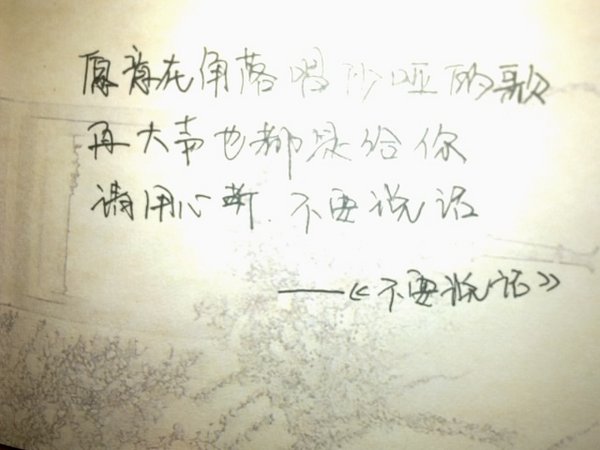 愿意在角落唱沙哑的歌
再大声也都是给你
请用心听.不要说话
——《不要说话》